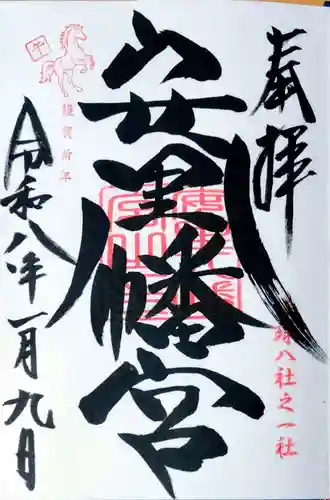 奉拝
八社之一社
安里八幡宮
午
謹賀新年
令和八年一月九日